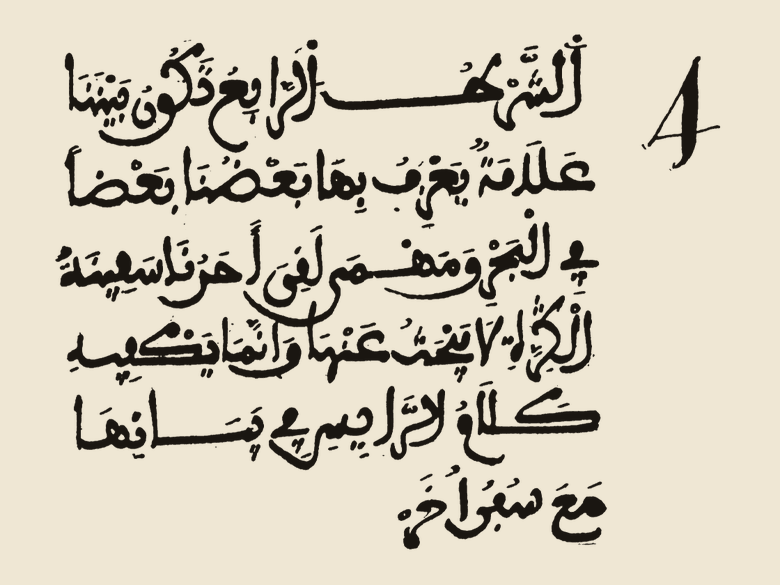 الشَّرْطُ الرَّابِعُ تَكُونُ بَيْنَنَا
عَلَامَةٌ يَعْرِفُ بِهَا بَعْضُنَا بَعْضاً
فِي الْبَحْرِ وَمَهْمَى لَقِيَ أَحَدُنَا سَفِينَةُ
لَا يَبْحَثُ عَنْهَا وَإنَّمَا يَكْفِيهِ
كَلَامُ الرَّايِسِ فِي
مَعَ سُفُنٍ أُخَرْ